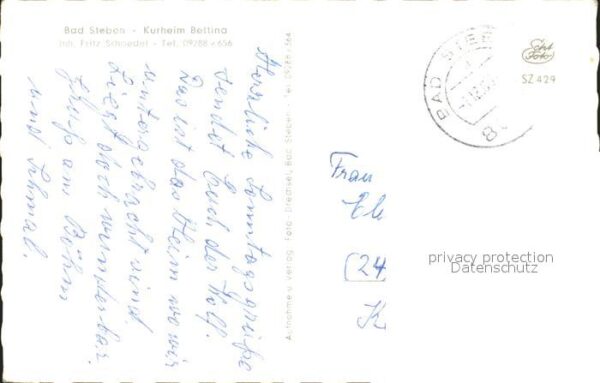 Bad Steben - Kurheim Bettina
Inh. Fritz Schoedel - Tel. 09/88 - 656
Herzliche Sonntagsgrüße
sendet Euch der Rolf.
Das ist das Heim wo wir
untergebracht sind.
Liegt doch wunderbar.
Gruß an Böhm
und
Aufnahme u. Verlag: Foto Drechsel, Bad Steben Tel. 09/88 - 564
BAD STEBEN
8
Echt
Foto
SZ 429
Frau
(24
K
privacy protection
Datenschutz